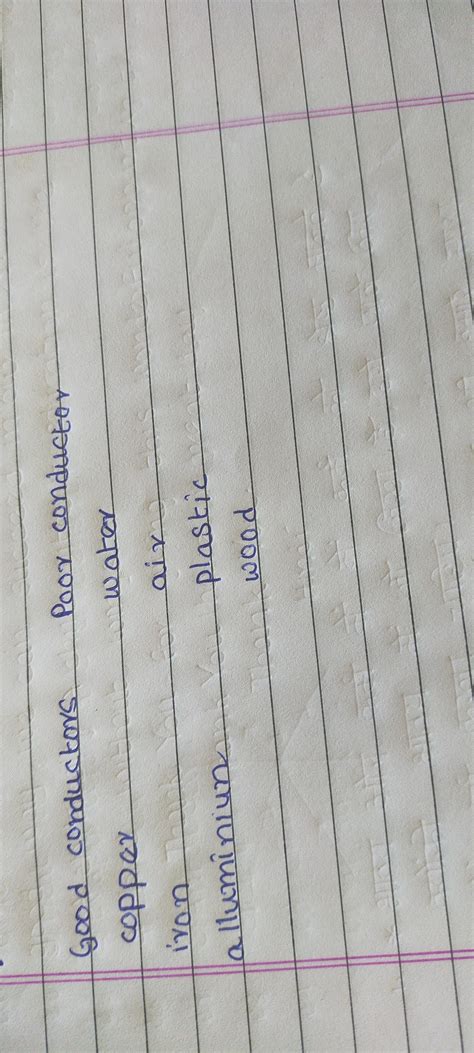 Good conductors Poor conductor
copper water
iron air
alluminiun plastic
wood